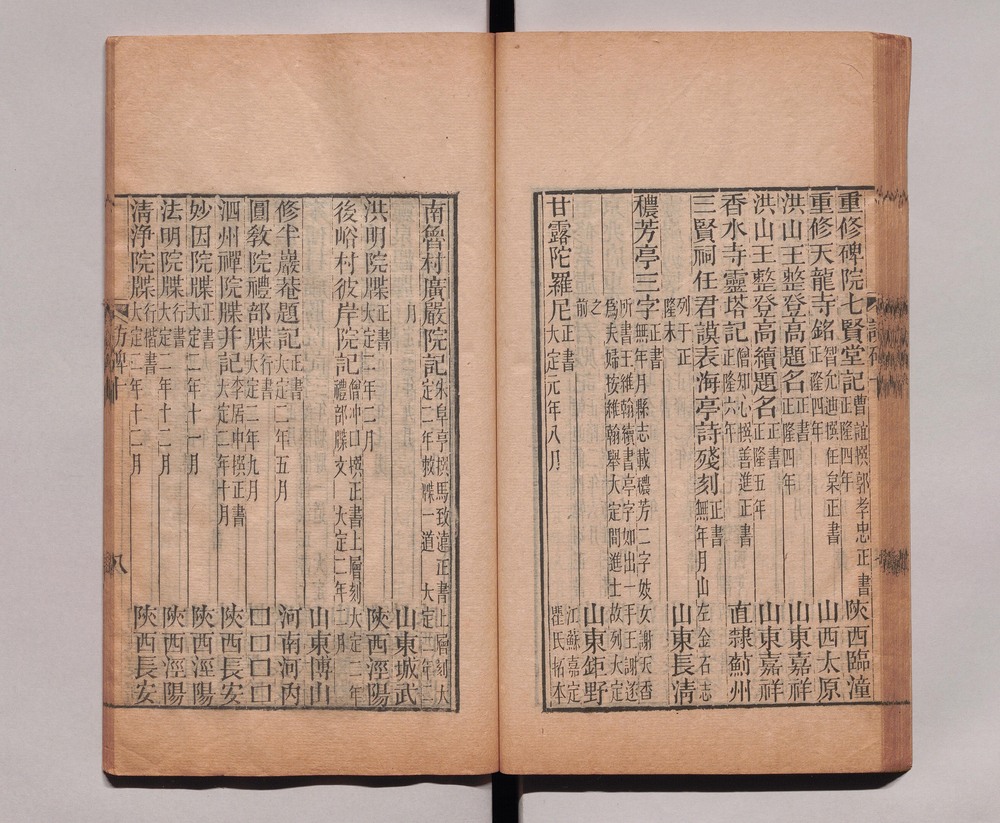 重修碑院七賢堂記 曹誼撰郭孝忠正書 正隆四年 陝西臨潼
重修天龍寺銘 智允迪撰任杲正書 正隆四年 山西太原
洪山王整登高題名 正書 正隆四年 山東嘉祥
洪山王整登高續題名 正書 正隆五年 山東嘉祥
香水寺靈塔記 僧知心撰善進正書 正隆六年 直隸薊州
三賢祠任君謨表海亭詩殘刻 正書 無年月山左金石志
列于正
隆末 山東長清
穠芳亭三字 正書 無年月縣志載穠芳二字妓女謝天香
所書王維翰續書亭字如出一手王謝遂
爲夫婦按維翰舉大定間進士故列大定
之
前 山東鉅野
甘露陀羅尼 正書 大定元年八月 江蘇嘉定
瞿氏拓本
南魯村廣嚴院記 朱阜亭撰馬致遠正書上層刻大
定二年敕牒一道 大定二年二
月 山東城武
洪明院牒 正書 大定二年二月 陝西涇陽
後峪村彼岸院記 僧冲口撰正書上層刻大定二年
禮部牒文 大定二年二月
山東博山
修半巖菴題記 正書 大定二年五月 河南河内
圓敎院禮部牒 行書 大定二年九月 口口口口
泗州禪院牒并記 李居中撰正書 大定二年十月 陝西長安
妙因院牒 正書 大定二年十一月 陝西涇陽
法明院牒 行書 大定二年十二月 陝西涇陽
淸浄院牒 行楷書 大定二年十二月 陝西長安
八